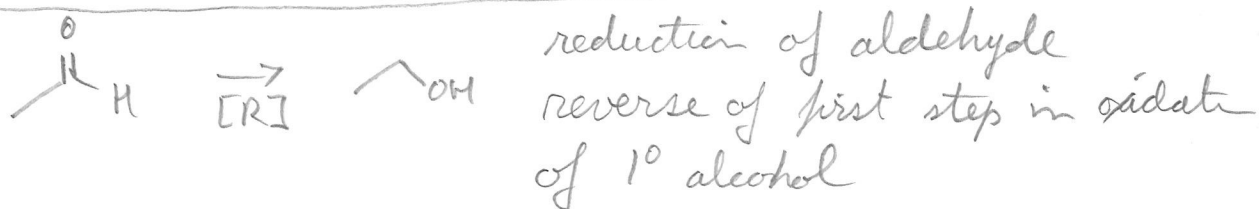 O
H
[R]
OH
reduction of aldehyde
reverse of first step in oxidatn
of 1° alcohol